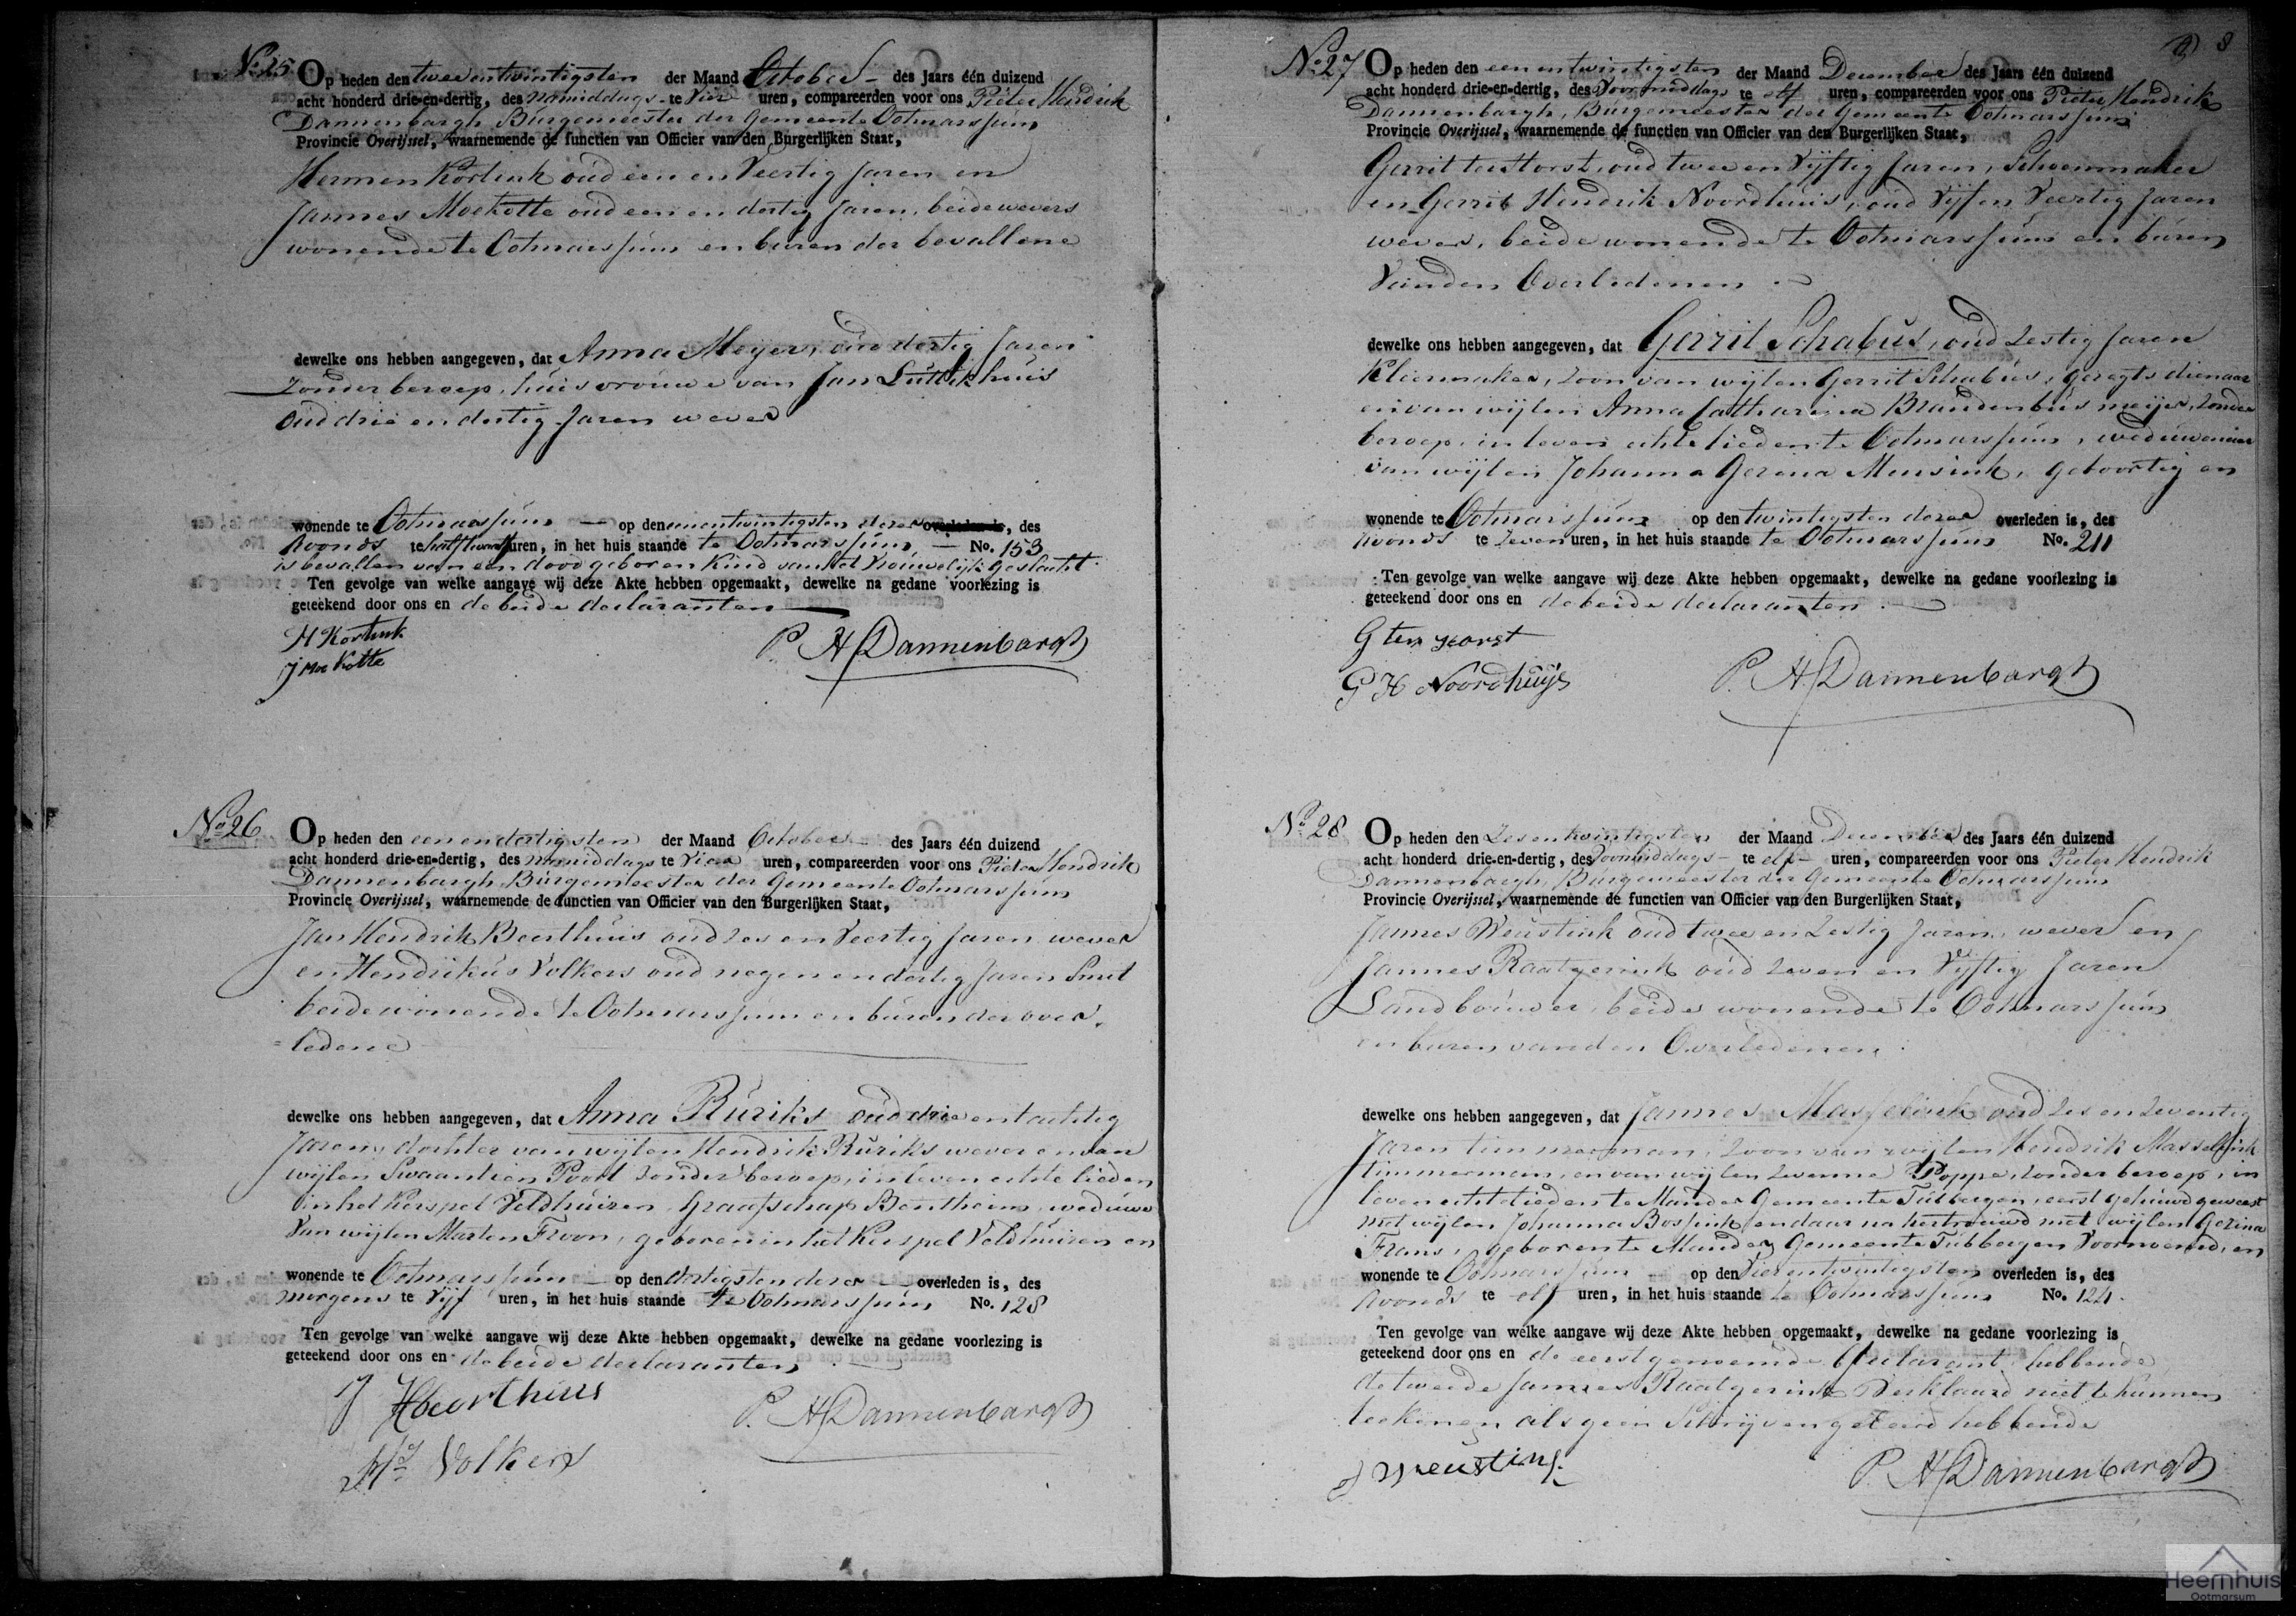 No 25 Op heden den twee en twintigsten der Maand October des Jaars één duizend
acht honderd drie-en-dertig, des namiddags te Vier uren, compareerden voor ons Pieter Hendrik
Dannenbargh, Burgemeester der Gemeente Ootmarssum
Provincie Overijssel, waarnemende de functien van Officier van den Burgerlijken Staat,
Hermen Kortink oud een en Veertig Jaren en
Jannes Moekotte oud een en dertig Jaren, beide wevers
wonende te Ootmarssum en buren der bevallene
dewelke ons hebben aangegeven, dat Anna Meyer, oud dertig Jaren
Zonder beroep, huisvrouwe van Jan Luttikhuis
oud drie en dertig Jaren wever
wonende te Ootmarssum op den eenentwintigsten dezer overleden is, des
Avonds te half twaalf uren, in het huis staande te Ootmarssum No. 153
is bevallen van een dood geboren Kind van het Vrouwelijk geslacht
Ten gevolge van welke aangave wij deze Akte hebben opgemaakt, dewelke na gedane voorlezing is
geteekend door ons en de beide declaranten
H Kortink
J Moekotte
P. H. Dannenbargh
No 26 Op heden den een en dertigsten der Maand October des Jaars één duizend
acht honderd drie-en-dertig, des namiddags te Vier uren, compareerden voor ons Pieter Hendrik
Dannenbargh, Burgemeester der Gemeente Ootmarssum
Provincie Overijssel, waarnemende de functien van Officier van den Burgerlijken Staat,
Jan Hendrik Beerthuis oud zes en Veertig Jaren wever
en Hendrikus Volkers oud negen en dertig Jaren Smit
beide wonende te Ootmarssum en buren der over
=ledene
dewelke ons hebben aangegeven, dat Anna Ruriks oud drie en tachtig
Jaren, dochter van wijlen Hendrik Ruriks wever en van
wijlen Swaantien Poort zonder beroep, in leven echte lieden
in het Kerspel Veldhuizen, Graafschap Bentheim, weduwe
van wijlen Marten Froon, geboren in het Kerspel Veldhuizen en
wonende te Ootmarssum op den dertigsten dezer overleden is, des
morgens te Vijf uren, in het huis staande te Ootmarssum No. 128
Ten gevolge van welke aangave wij deze Akte hebben opgemaakt, dewelke na gedane voorlezing is
geteekend door ons en de beide declaranten
J H beerthuis
Hs Volkers
P. H. Dannenbargh
8
No 27 Op heden den een en twintigsten der Maand December des Jaars één duizend
acht honderd drie-en-dertig, des Voormiddags te elf uren, compareerden voor ons Pieter Hendrik
Dannenbargh, Burgemeester der Gemeente Ootmarssum
Provincie Overijssel, waarnemende de functien van Officier van den Burgerlijken Staat,
Gerrit ten Horst, oud twee en Vijftig Jaren, Schoenmaker
en Gerrit Hendrik Noordhuis, oud Vijf en Veertig Jaren
wever, beide wonende te Ootmarssum en buren
van den Overledenen
dewelke ons hebben aangegeven, dat Gerrit Schabus, oud Zestig Jaren
Kleermaker, zoon van wijlen Gerrit Schabus, geregtsdienaar
en van wijlen Anna Catharina Brandenbusmeijer, zonder
beroep, in leven echte lieden te Ootmarssum, weduwenaar
van wijlen Johanna Gezina Mensink, geboortig en
wonende te Ootmarssum op den twintigsten dezer overleden is, des
Avonds te Zeven uren, in het huis staande te Ootmarssum No. 211
Ten gevolge van welke aangave wij deze Akte hebben opgemaakt, dewelke na gedane voorlezing is
geteekend door ons en de beide declaranten
G ten Horst
G H Noordhuijs
P. H. Dannenbargh
No 28 Op heden den Zes en twintigsten der Maand December des Jaars één duizend
acht honderd drie-en-dertig, des Voormiddags te elf uren, compareerden voor ons Pieter Hendrik
Dannenbargh, Burgemeester der Gemeente Ootmarssum
Provincie Overijssel, waarnemende de functien van Officier van den Burgerlijken Staat,
Jannes Weustink oud twee en Zestig Jaren, wever en
Jannes Raatgerink oud Zeven en Vijftig Jaren
Landbouwer, beide wonende te Ootmarssum
en buren van den Overledenen.
dewelke ons hebben aangegeven, dat Jannes Masselink oud Zes en Zeventig
Jaren timmerman, zoon van wijlen Hendrik Masselink
timmerman, en van wijlen Zwenne Poppe, zonder beroep, in
leven echte lieden te Mander Gemeente Tubbergen, eerst gehuwd geweest
met wijlen Johanna Bossink en daar na hertrouwd met wijlen Gezina
Frans, geboren te Mander Gemeente Tubbergen Voornoemd, en
wonende te Ootmarssum op den Vier en twintigsten overleden is, des
Avonds te elf uren, in het huis staande te Ootmarssum No. 121.
Ten gevolge van welke aangave wij deze Akte hebben opgemaakt, dewelke na gedane voorlezing is
geteekend door ons en de eerstgenoemde declarant, hebbende
de tweede Jannes Raatgerink Verklaard niet te kunnen
teekenen als geen Schrijven geleerd hebbende
J Weustink
P. H. Dannenbargh
Heemhuis
Ootmarsum